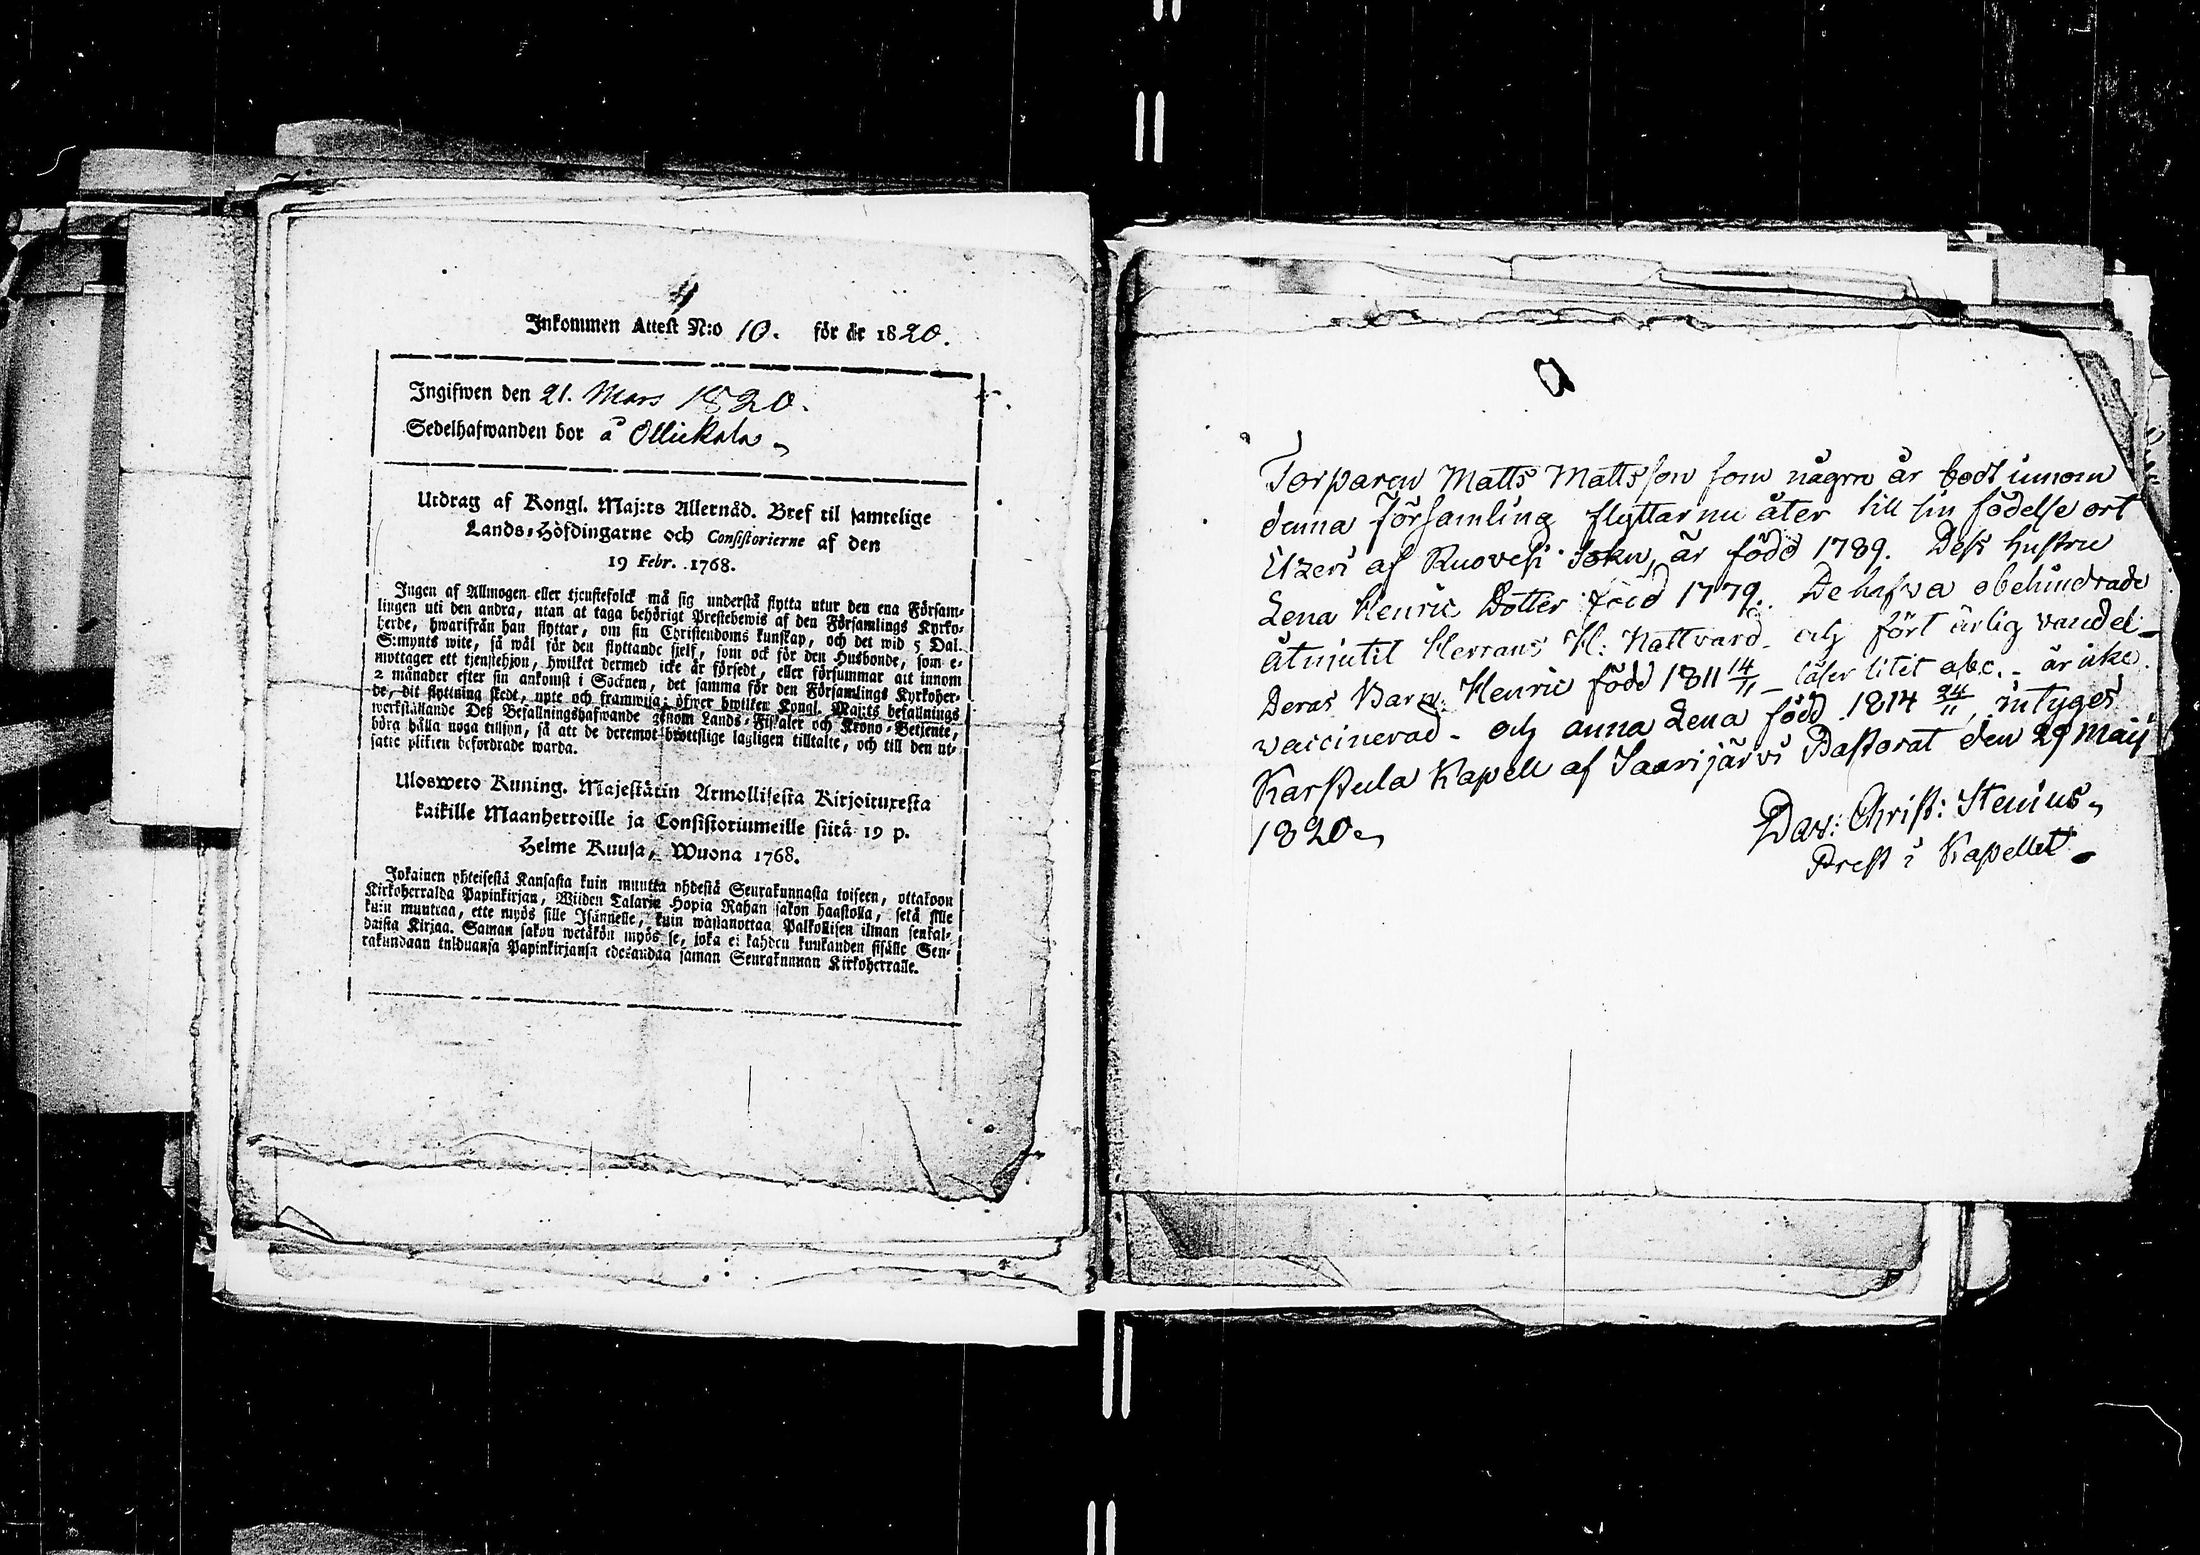 Inkommen Attest N:o 10. för år 1820.
Ingifwen den 21. Mars 1820.
Sedelhafwanden bor å Ollickala
Utdrag af Kongl. Maj:ts Allernåd. Bref til samtelige
Lands-Höfdingarne och Consistorierne af den
19 Febr. 1768.
Ingen af Allmogen eller tjenstefolck må sig understå flytta utur den ena Försam-
lingen uti den andra, utan at taga behörigt Prestebewis af den Församlings Kyrko-
herde, hwarifrån han flyttar, om sin Christendoms kunskap, och det wid 5 Dal.
S:mynts wite, så wäl för den flyttande sjelf, som ock för den Husbonde, som e-
mottager ett tjenstehjon, hwilket dermed icke är försedt, eller försummar att innom
2 månader efter sin ankomst i Socknen, det samma för den Församlings Kyrkoher-
de, dit flyttning skedt, upte och framwisa; öfwer hwilken Kongl. Maj:ts befallnings
werkställande Deß Befallningshafwande genom Lands-Fiskaler och Krono-Betjente,
böra hålla noga tillsyn, så att de deremot brottslige lagligen tilltalte, och till den ut-
satte plikten befordrade warda.
Ulosweto Kuning. Majestätin Armollisesta Kirjoituxesta
kaikille Maanherroille ja Consistoriumeille siitä 19 p.
Helme Kuusa, Wuona 1768.
Jokainen yhteisestä Kansasta kuin muutta yhdestä Seurakunnasta toiseen, ottakoon
Kirkoherralda Papinkirjan, Wiiden Talarin Hopia Rahan sakon haastolla, sekä sille
kuin muuttaa, ette myös sille Isännelle, kuin wastanottaa Palkollisen ilman senkal-
daista Kirjaa. Saman sakon wetäkön myös se, joka ei kahden kuukauden sisälle Seu-
rakundaan tulduansa Papinkirjansa edesandaa saman Seurakunnan Kirkoherralle.
Torparen Matts Mattsson som några år bodt innom
denna Församling flyttar nu åter till sin födelse ort
Etzeri af Ruovesi Sokn, är född 1789. Dess hustru
Lena Henric Dotter född 1779. De hafva obehindrade
åtnjutit Herrans H: Nattvard och fört ärlig vandel
Deras Barn: Henric född 1811 14/11 läser litet abc. är icke
vaccinerad - och anna Lena född 1814 24/11, intyges
Karstula Kapell af Saarijärvi Pastorat den 29 Maij
1820
Dav: Christ: Stenius
Prest i Kapellet